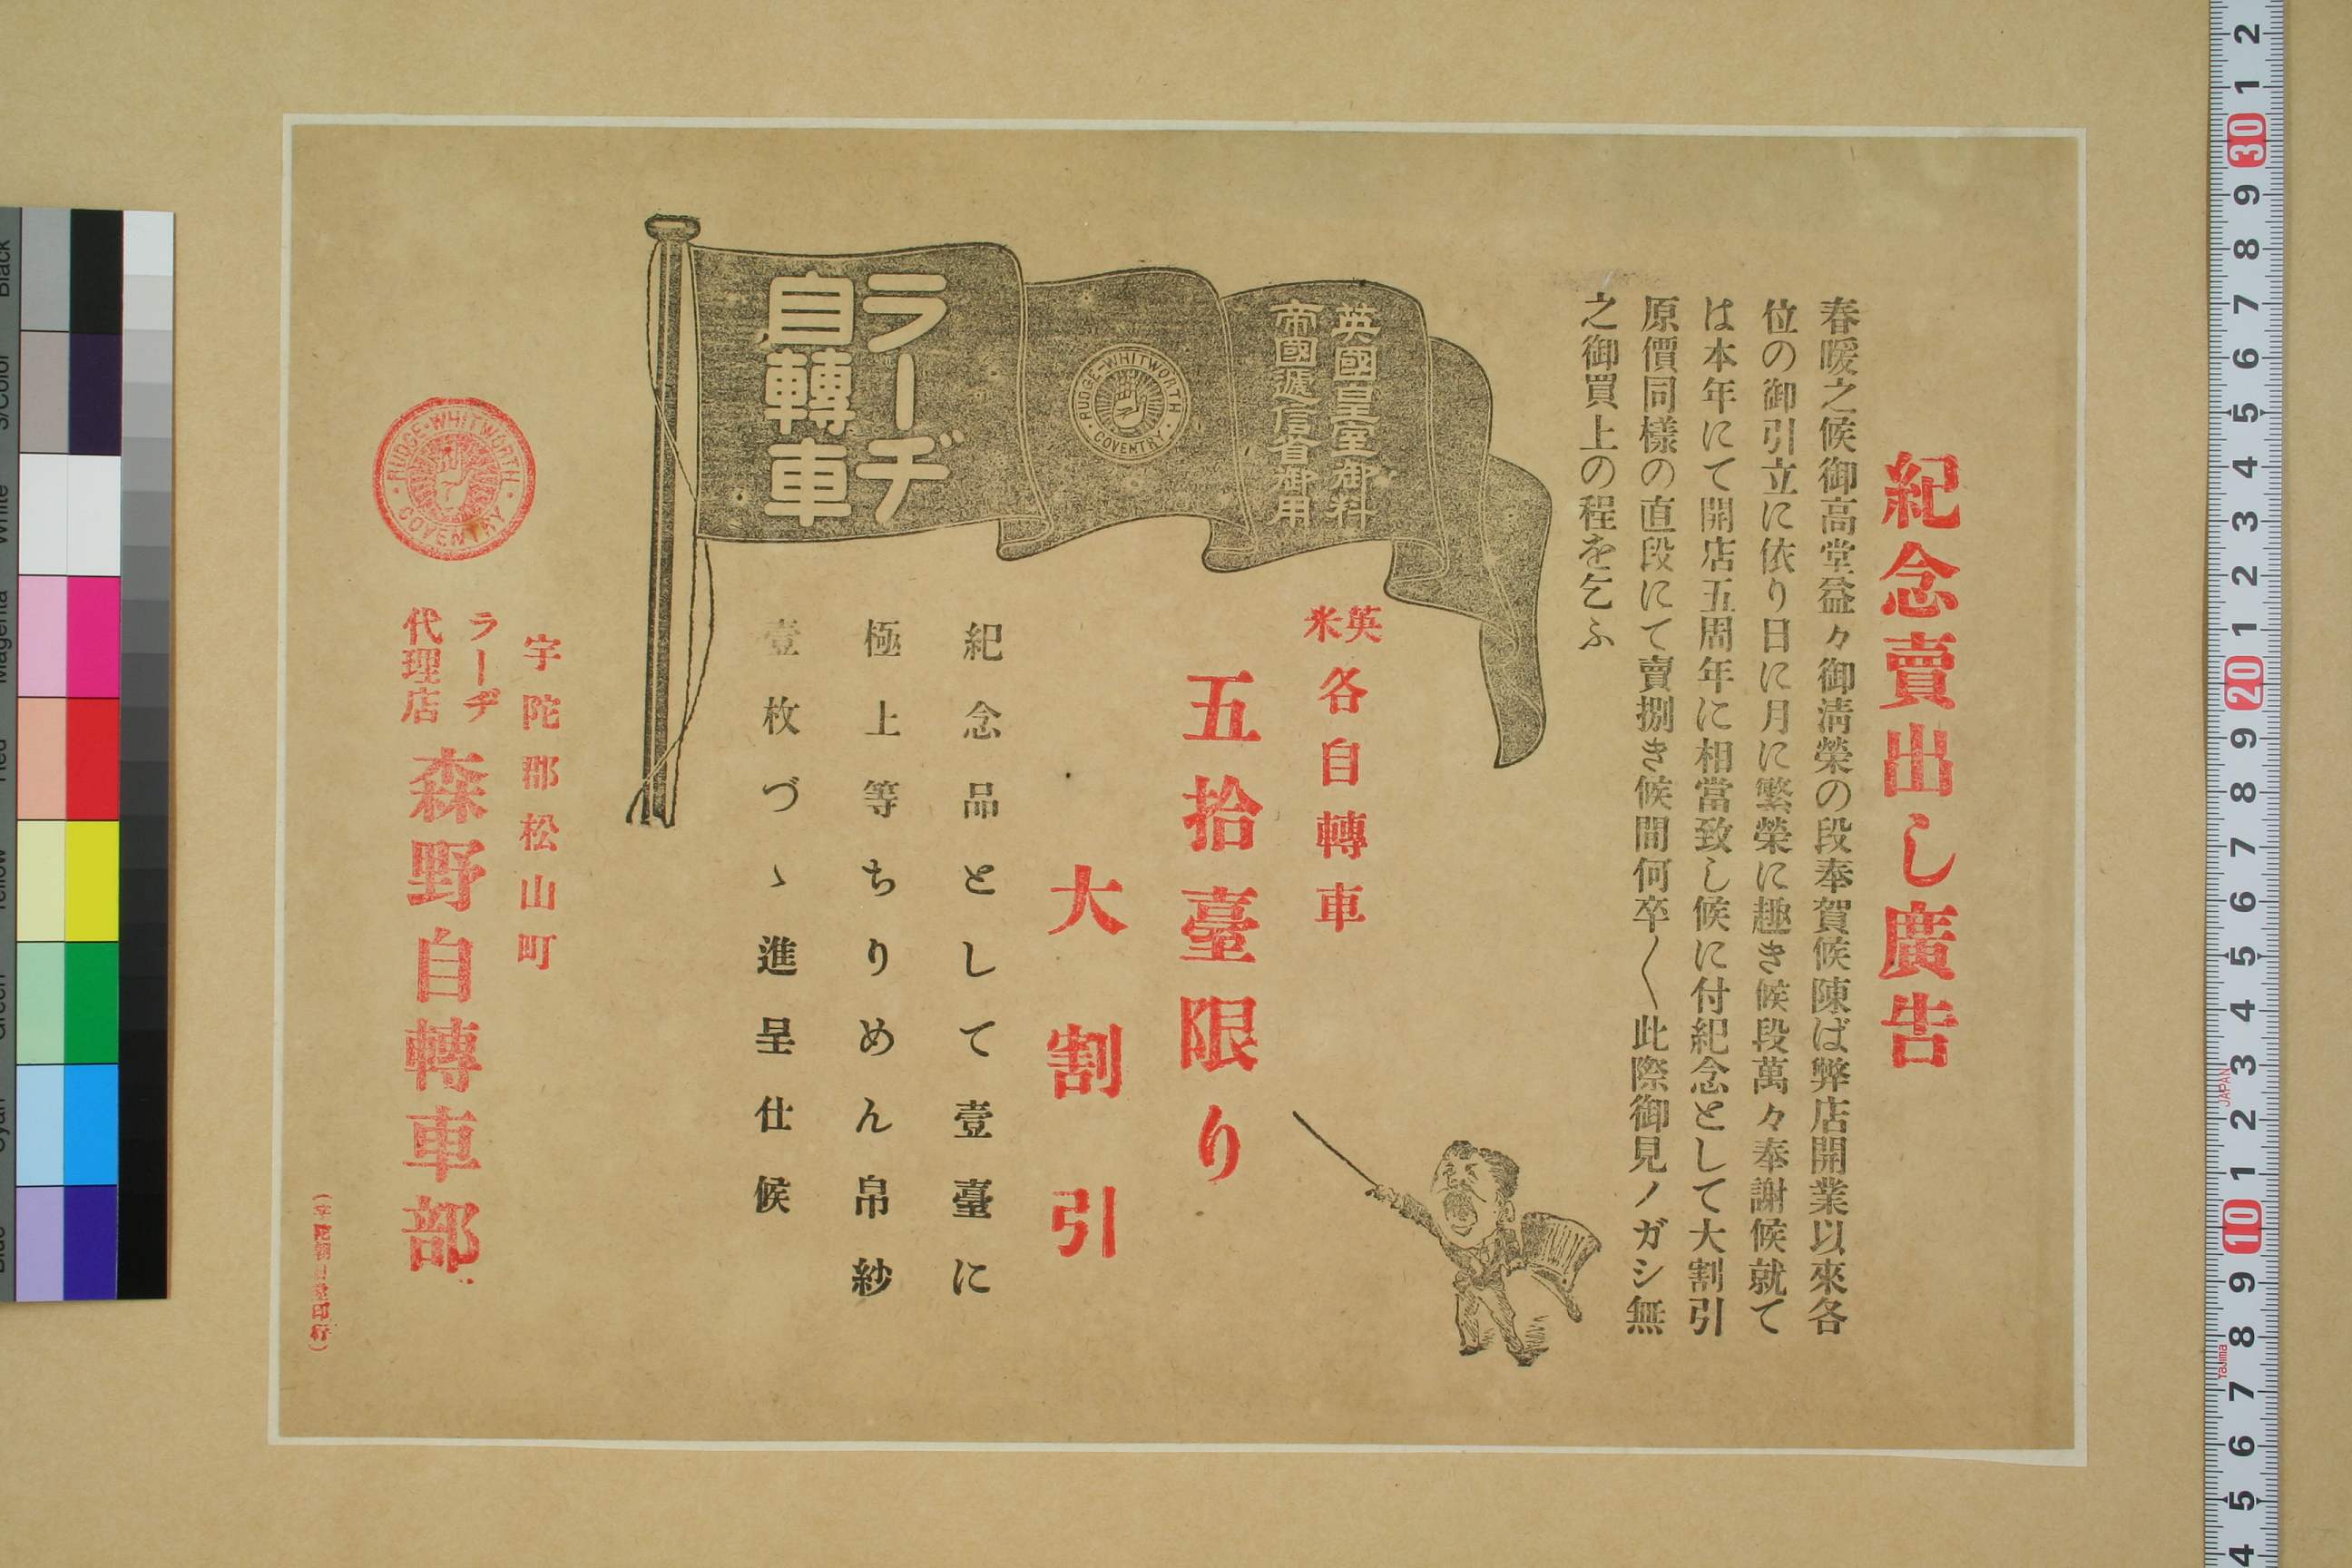 紀念賣出し廣告
春暖之候御高堂益々御淸榮の段奉賀候陳ば弊店開業以來各
位の御引立に依り日に月に繁榮に趣き候段萬々奉謝候就て
は本年にて開店五周年に相當致し候に付紀念として大割引
原價同樣の直段にて賣捌き候間何卒〱此際御見ノガシ無
之御買上の程を乞ふ
英國皇室御料
帝國遞信省御用
RUDGE-WHITWORTH
COVENTRY
ラーヂ
自轉車
英米各自轉車
五拾臺限り
大割引
紀念品として壹臺に
極上等ちりめん帛紗
壹枚づゝ進呈仕候
宇陀郡松山町
RUDGE-WHITWORTH
COVENTRY
ラーヂ
代理店
森野自轉車部
印行)
2
1
30
9
8
7
6
5
4
3
2
1
20
9
8
7
6
5
4
3
2
1
10
9
8
7
6
5
4
JAPAN
Tajima
Black
3/Color
White
Magenta